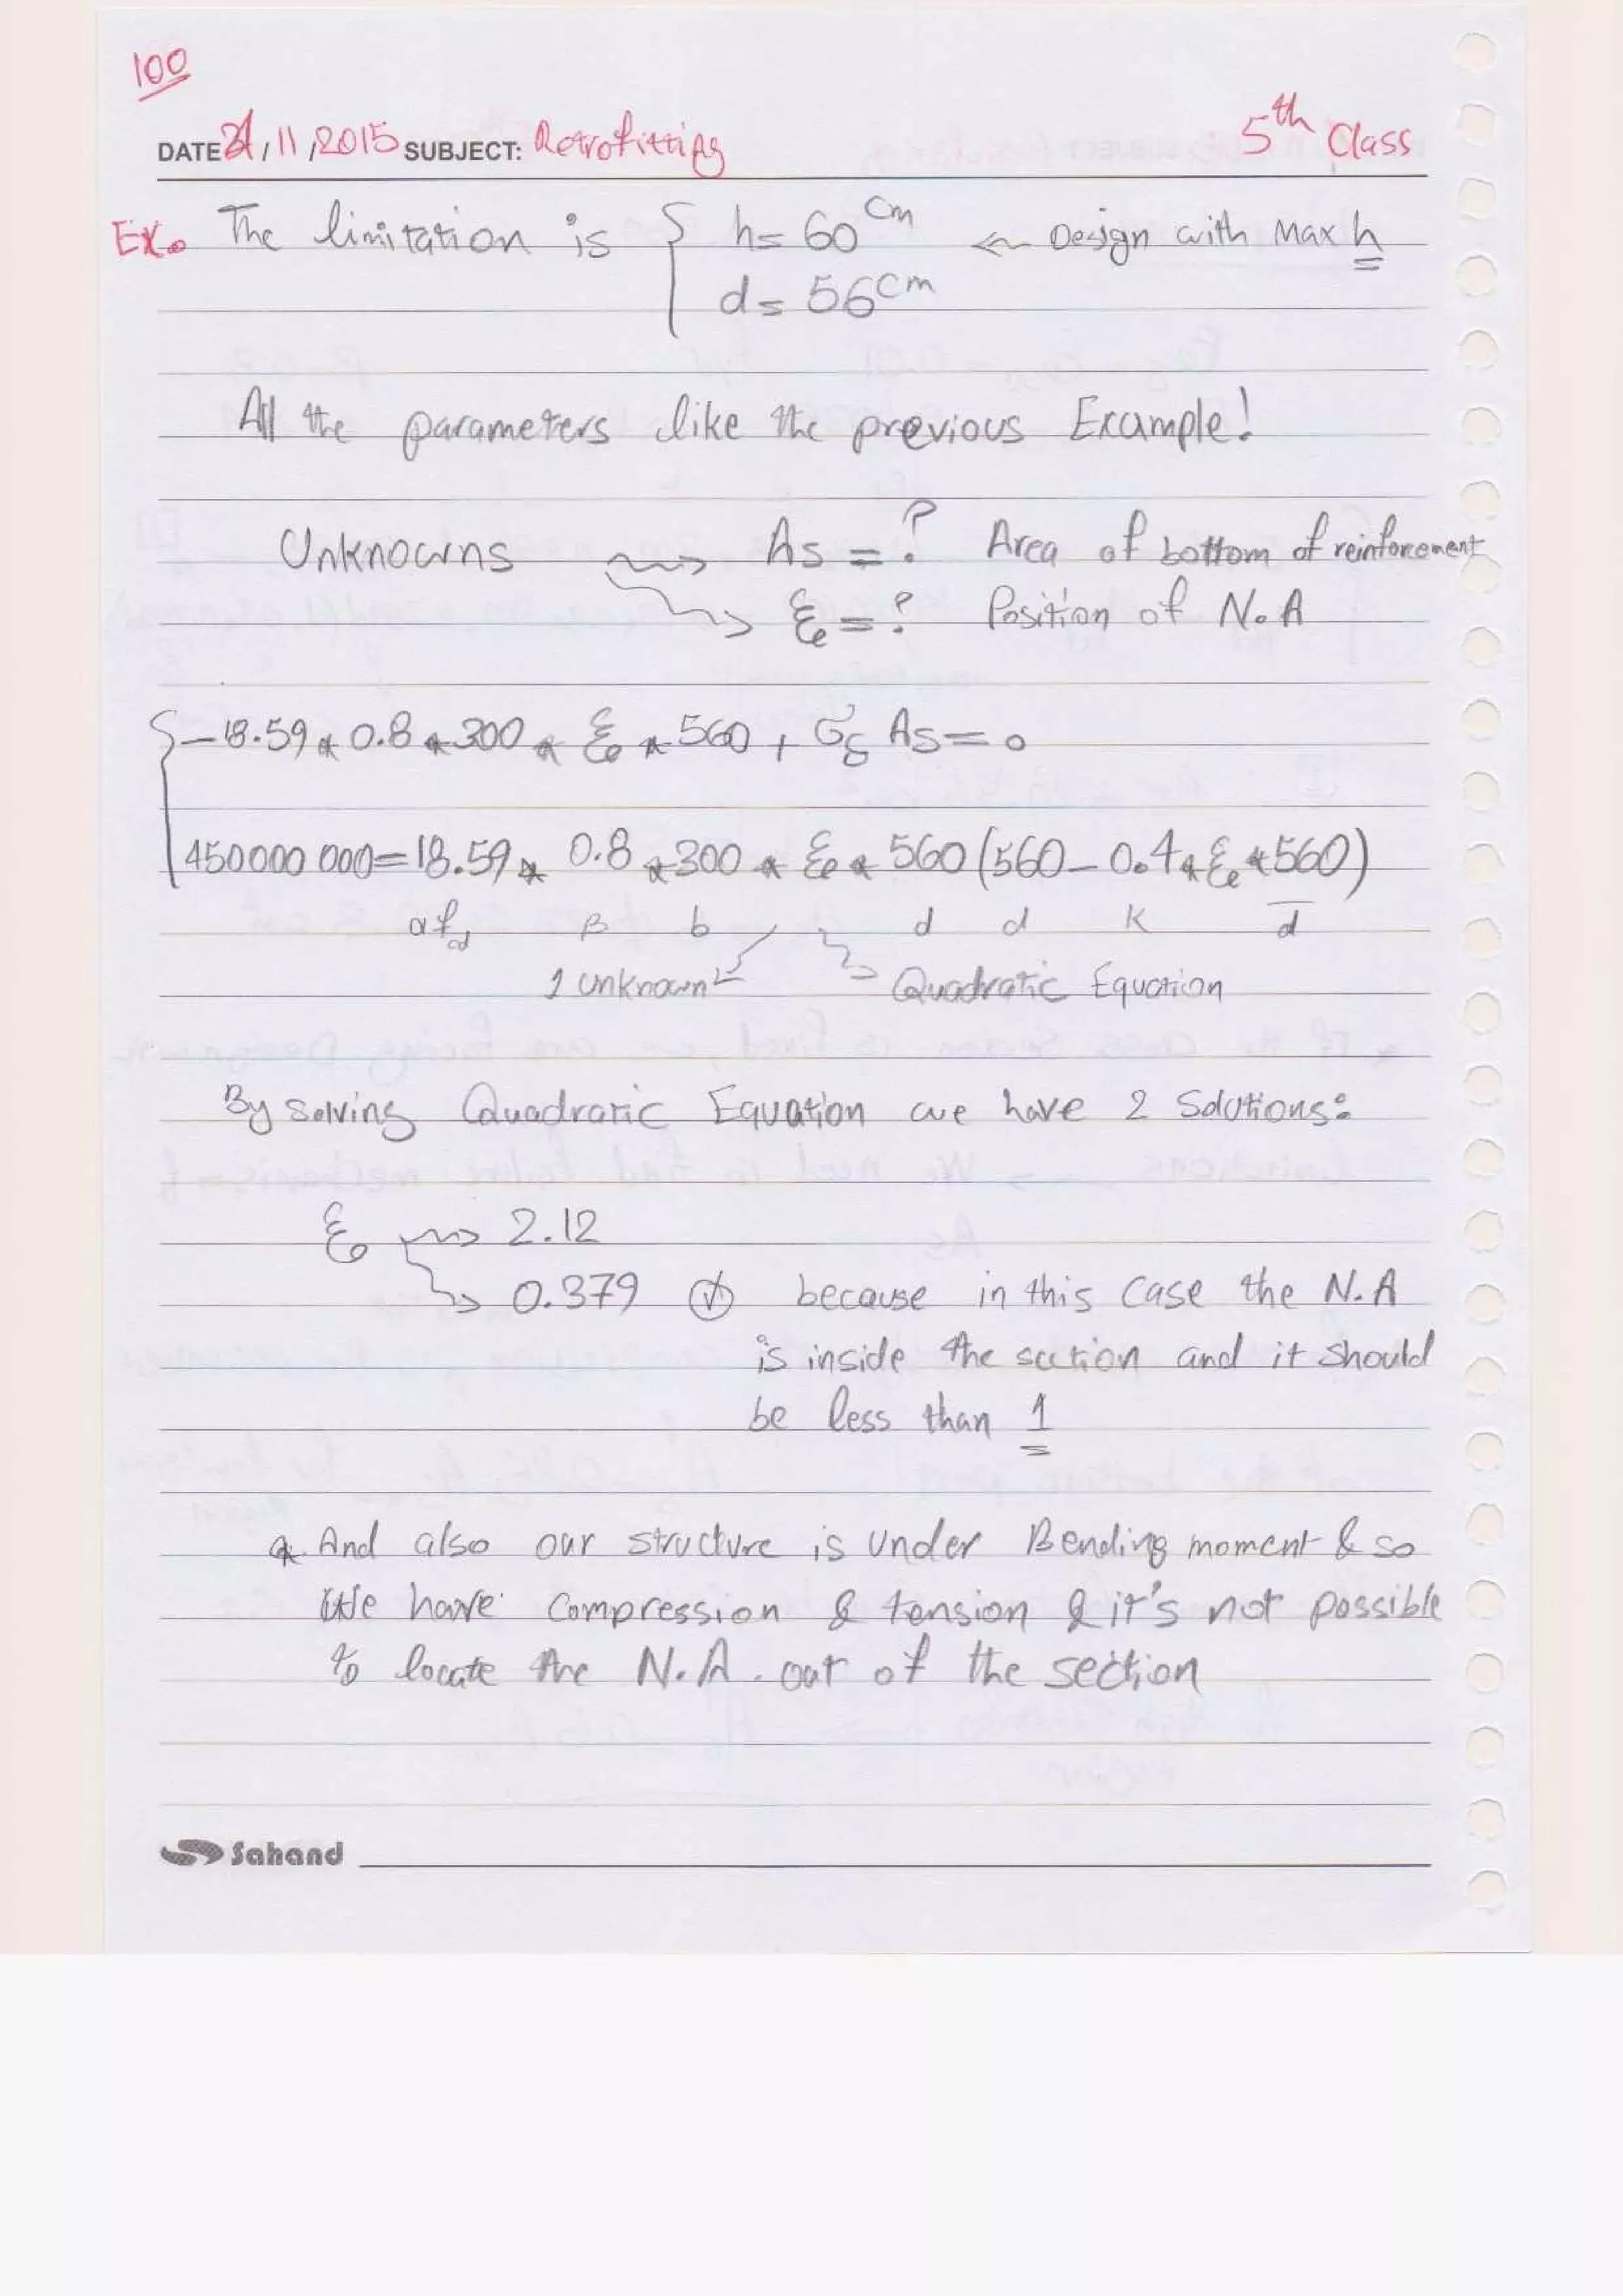 100
DATE 21/11/2015 SUBJECT: Retrofitting 5th Class
Ex. The limitation is { h= 60 cm ← Design with Max h
d= 56 cm
All the parameters like the previous Example!
Unknowns → As = ? Area of bottom of reinforcement
→ ξ = ? Position of N.A
{ -18.59 * 0.8 * 300 * ξ * 560 + σs As = 0
450000 000 = 18.59 * 0.8 * 300 * ξ * 560 (560 - 0.4 * ξ * 560)
αfcd β b d d K d
1 unknown Quadratic Equation
By solving Quadratic Equation we have 2 Solutions:
ξ → 2.12
→ 0.379 ✓ because in this case the N.A
is inside the section and it should
be less than 1
* And also our structure is under Bending moment & so
We have compression & tension & it's not possible
to locate the N.A. out of the section
Sahand